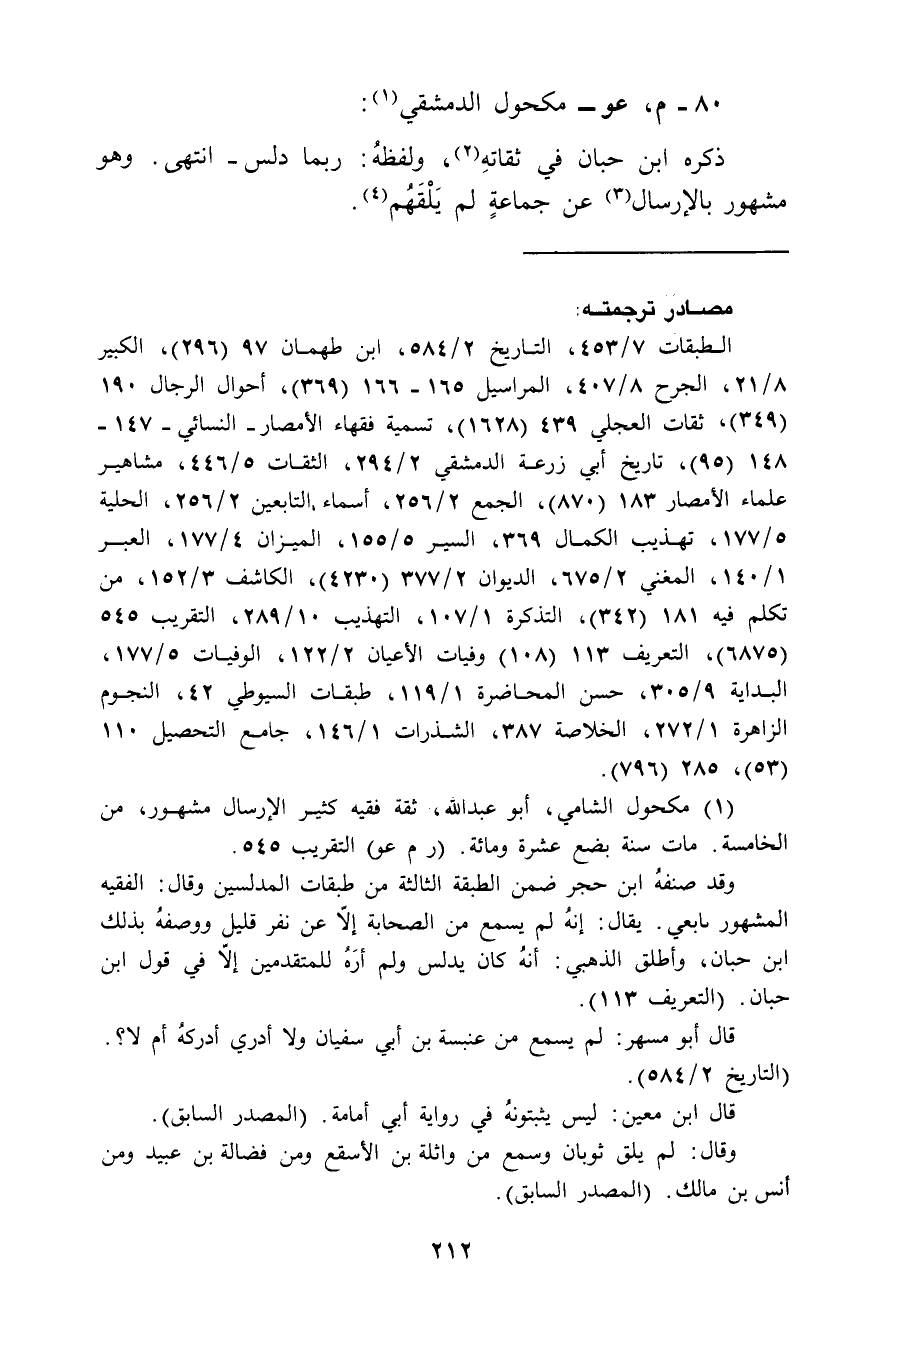 ٨٠ - م، عو - مكحول الدمشقي(١):
ذكره ابن حبان في ثقاتهِ(٢)، ولفظهُ: ربما دلس - انتهى. وهو
مشهور بالإرسال(٣) عن جماعةٍ لم يَلْقَهُم(٤).
مصادر ترجمته:
الطبقات ٤٥٣/٧، التاريخ ٥٨٤/٢، ابن طهمان ٩٧ (٢٩٦)، الكبير
٢١/٨، الجرح ٤٠٧/٨، المراسيل ١٦٥ - ١٦٦ (٣٦٩)، أحوال الرجال ١٩٠
(٣٤٩)، ثقات العجلي ٤٣٩ (١٦٢٨)، تسمية فقهاء الأمصار - النسائي - ١٤٧ -
١٤٨ (٩٥)، تاريخ أبي زرعة الدمشقي ٢٩٤/٢، الثقات ٤٤٦/٥، مشاهير
علماء الأمصار ١٨٣ (٨٧٠)، الجمع ٢٥٦/٢، أسماء التابعين ٢٥٦/٢، الحلية
١٧٧/٥، تهذيب الكمال ٣٦٩، السير ١٥٥/٥، الميزان ١٧٧/٤، العبر
١٤٠/١، المغني ٦٧٥/٢، الديوان ٣٧٧/٢ (٤٢٣٠)، الكاشف ١٥٢/٣، من
تكلم فيه ١٨١ (٣٤٢)، التذكرة ١٠٧/١، التهذيب ٢٨٩/١٠، التقريب ٥٤٥
(٦٨٧٥)، التعريف ١١٣ (١٠٨) وفيات الأعيان ١٢٢/٢، الوفيات ١٧٧/٥،
البداية ٣٠٥/٩، حسن المحاضرة ١١٩/١، طبقات السيوطي ٤٢، النجوم
الزاهرة ٢٧٢/١، الخلاصة ٣٨٧، الشذرات ١٤٦/١، جامع التحصيل ١١٠
(٥٣)، ٢٨٥ (٧٩٦).
(١) مكحول الشامي، أبو عبدالله، ثقة فقيه كثير الإرسال مشهور، من
الخامسة. مات سنة بضع عشرة ومائة. (ر م عو) التقريب ٥٤٥.
وقد صنفهُ ابن حجر ضمن الطبقة الثالثة من طبقات المدلسين وقال: الفقيه
المشهور تابعي. يقال: إنهُ لم يسمع من الصحابة إلّا عن نفر قليل ووصفهُ بذلك
ابن حبان، وأطلق الذهبي: أنهُ كان يدلس ولم أرَهُ للمتقدمين إلّا في قول ابن
حبان. (التعريف ١١٣).
قال أبو مسهر: لم يسمع من عنبسة بن أبي سفيان ولا أدري أدركهُ أم لا؟.
(التاريخ ٥٨٤/٢).
قال ابن معين: ليس يثبتونهُ في رواية أبي أمامة. (المصدر السابق).
وقال: لم يلق ثوبان وسمع من واثلة بن الأسقع ومن فضالة بن عبيد ومن
أنس بن مالك. (المصدر السابق).
٢١٢